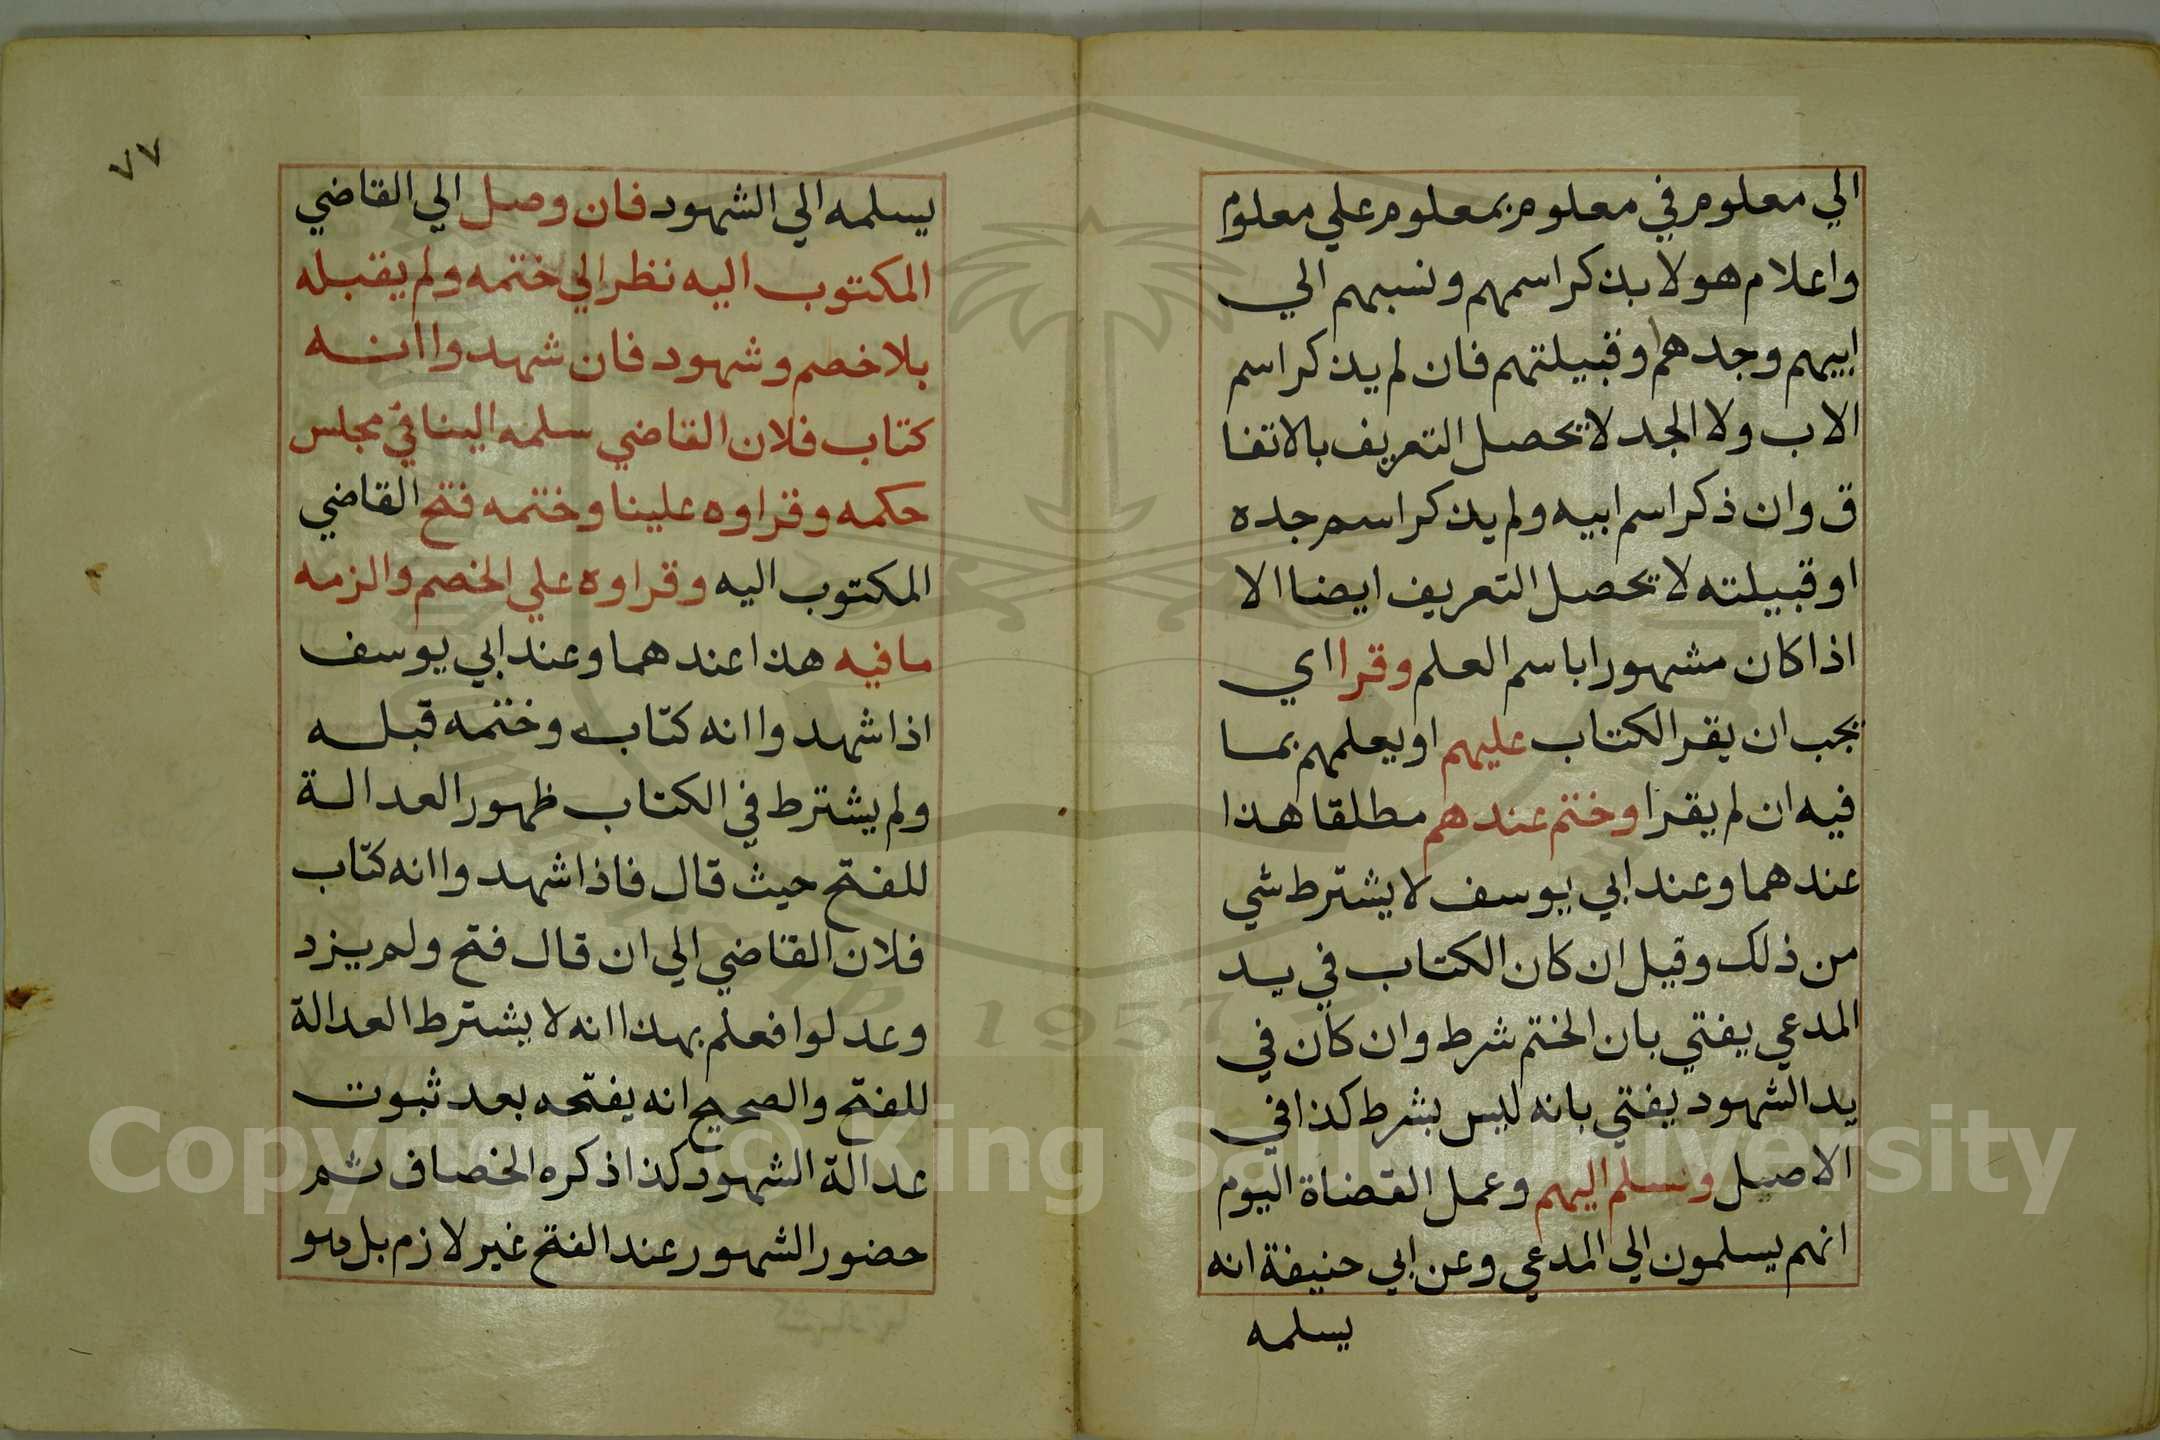 الي معلوم في معلوم بمعلوم علي معلوم
واعلام هولا بذكر اسمهم ونسبهم الي
ابيهم وجدهم وقبيلتهم فان لم يذكر اسم
الاب ولا الجد لا يحصل التعريف بالاتفا
ق وان ذكر اسم ابيه ولم يذكر اسم جده
او قبيلته لا يحصل التعريف ايضا الا
اذا كان مشهورا باسم العلم وقرا اي
يجب ان يقرا لكتاب عليهم او يعلمهم بما
فيه ان لم يقرا وختم عندهم مطلقا هذا
عندهما وعند ابي يوسف لا يشترط شي
من ذلك وقيل ان كان الكتاب في يد
المدعي يفتي بان الختم شرط وان كان في
يد الشهود يفتي بانه ليس بشرط كذا في
الاصيل وسلم اليهم وعمل القضاة اليوم
انهم يسلمون الي المدعي وعن ابي حنيفة انه
يسلمه
٧٧
يسلمه الي الشهود فان وصل الي القاضي
المكتوب اليه نظر الي ختمه ولم يقبله
بلا خصم وشهود فان شهدوا انه
كتاب فلان القاضي سلمه الينا في مجلس
حكمه وقراوه علينا وختمه فتح القاضي
المكتوب اليه وقراوه علي الخصم والزمه
ما فيه هذا عندهما وعند ابي يوسف
اذا شهدوا انه كتابه وختمه قبله
ولم يشترط في الكتاب ظهور العدالة
للفتح حيث قال فاذا شهدوا انه كتاب
فلان القاضي الي ان قال فتح ولم يزد
وعدلوا فعلم بهذا انه لا يشترط العدالة
للفتح والصحيح انه يفتحه بعد ثبوت
عدالة الشهود كذا ذكره الخصاف ثم
حضور الشهور عند الفتح غير لازم بل هو
1957
Copyright © King Saud University